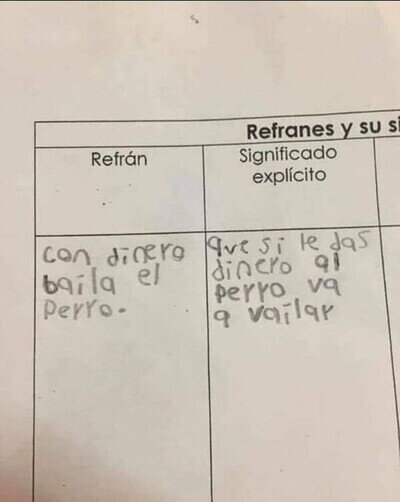 Refranes y su si
Refrán
Significado
explícito
con dinero
baila el
perro.
que si le das
dinero al
perro va
a vailar